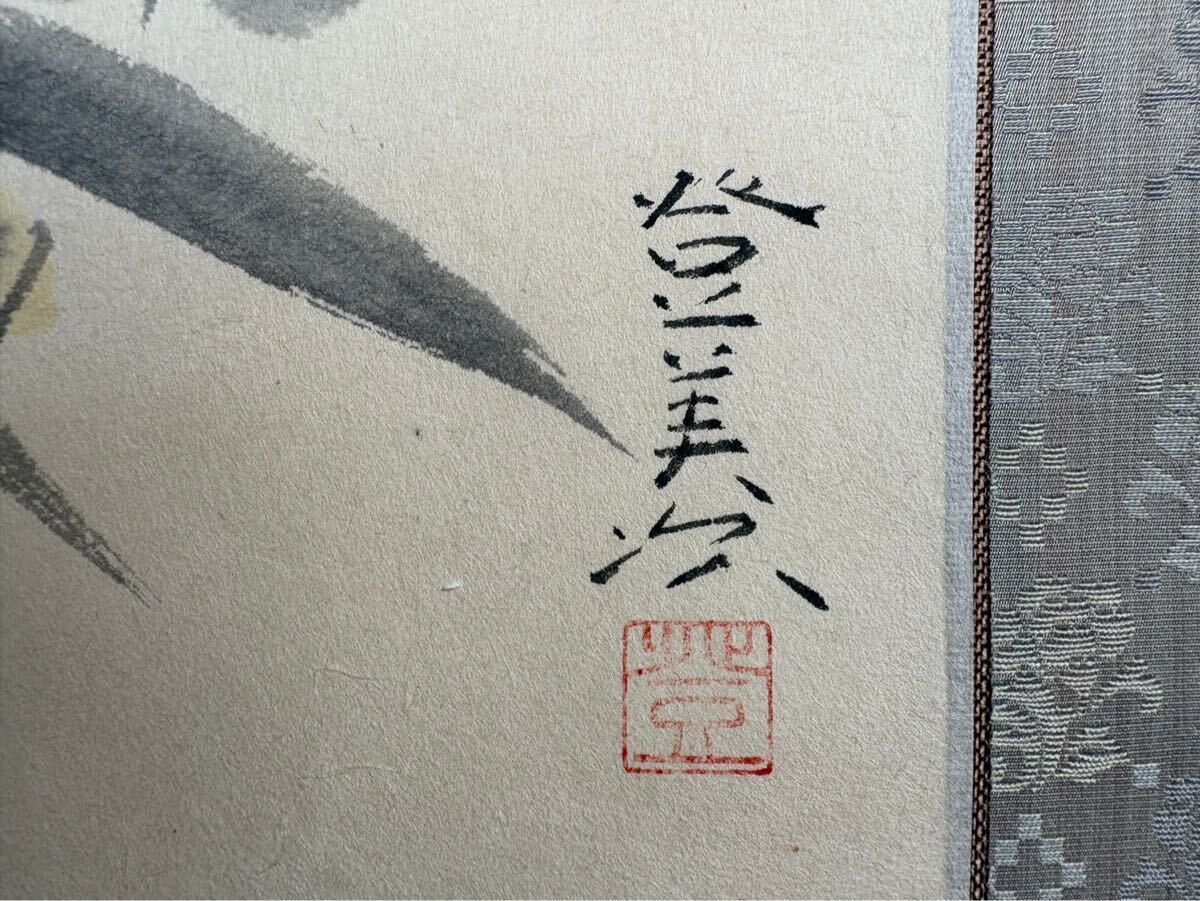 登美次
登